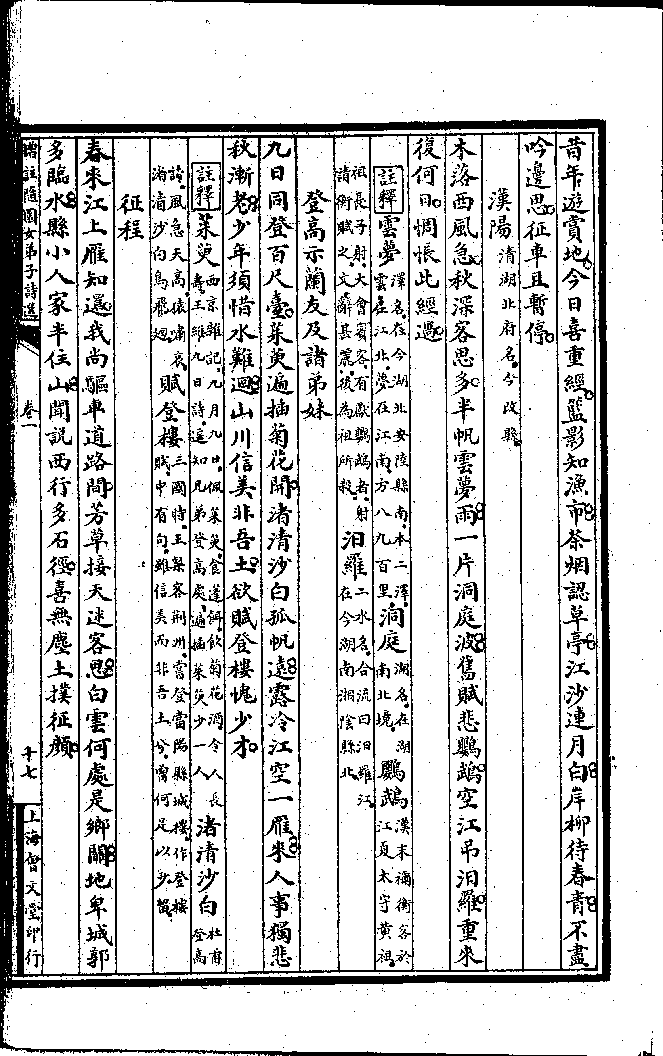 昔年遊賞地今日喜重經籃影知漁市茶烟認草亭江沙連月白岸柳待春青不盡
吟邊思征車且暫停
漢陽清湖北府名今改縣
木落西風急秋深客思多半帆雲夢雨一片洞庭波舊賦悲鸚鵡空江弔汨羅重來
復何日惆悵此經過
註釋 雲夢澤名在今湖北安陸縣南本二澤雲在江北夢在江南方八九百里 洞庭湖名在湖南北境 鸚鵡漢末禰衡客於江夏太守黃祖
祖長子射大會賓客有獻鸚鵡者射請衡賦之文辭甚麗後為祖所殺 汨羅二水名合流曰汨羅江在今湖南湘陰縣北
登高示蘭友及諸弟妹
九日同登百尺臺茱萸遍插菊花開渚清沙白孤帆遠露冷江空一雁來人事獨悲
秋漸老少年須惜水難迴山川信美非吾土欲賦登樓愧少才
註釋 茱萸西京雜記九月九日佩茱萸食蓬餌飲菊花酒令人長壽王維九日詩遥知兄弟登高處遍插茱萸少一人 渚清沙白杜甫登高
詩風急天高猿嘯哀渚清沙白鳥飛迴 賦登樓三國時王粲客荆州嘗登當陽縣城樓作登樓賦中有句雖信美而非吾土兮曾何足以少留
征程
春來江上雁知還我尚驅車道路間芳草接天迷客思白雲何處是鄉關地卑城郭
多臨水縣小人家半住山聞說西行多石徑喜無塵土撲征顏
增註隨園女弟子詩選 卷一 十七 上海會文堂印行